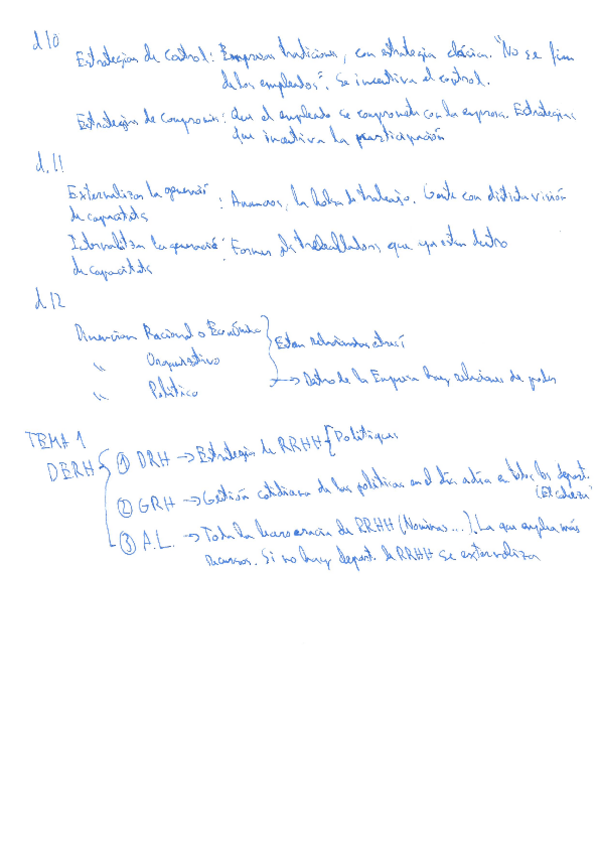 d10
Estrategias de Control: Empresas tradicionas, con estrategia clásica. "No se fian
de los empleados". Se incentiva el control.
Estrategias de Compromis: Que el empleado se comprometa con la empresa. Estrategias
que incentiva la participación
d.11
Externalizar la generació
de capacitats : Anuncios, la bolsa de trabajo. Gente con distinta visión
Internalitzar la generació : Formar als treballadors que ya estan dentro
de capacitats
d.12
Dimension Racional o Económica
" Organizativo
" Político
Estan relacionados entre sí
→ Dentro de la Empresa hay relaciones de poder
TEMA 1
DERH
① DRH → Estrategia de RRHH { Politiques
② GRH → Gestión cotidiana de las políticas en el día a día en todos los depart.
③ A.L. → Toda la burocracia de RRHH (Nominas...). La que emplea más
recursos. Si no hay depart. de RRHH se externaliza